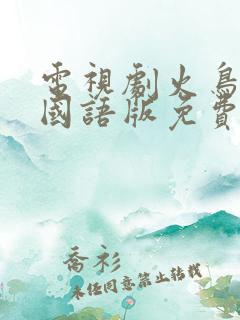 電視劇火鳥
國語版免費
喬衫
未經同意禁止轉載